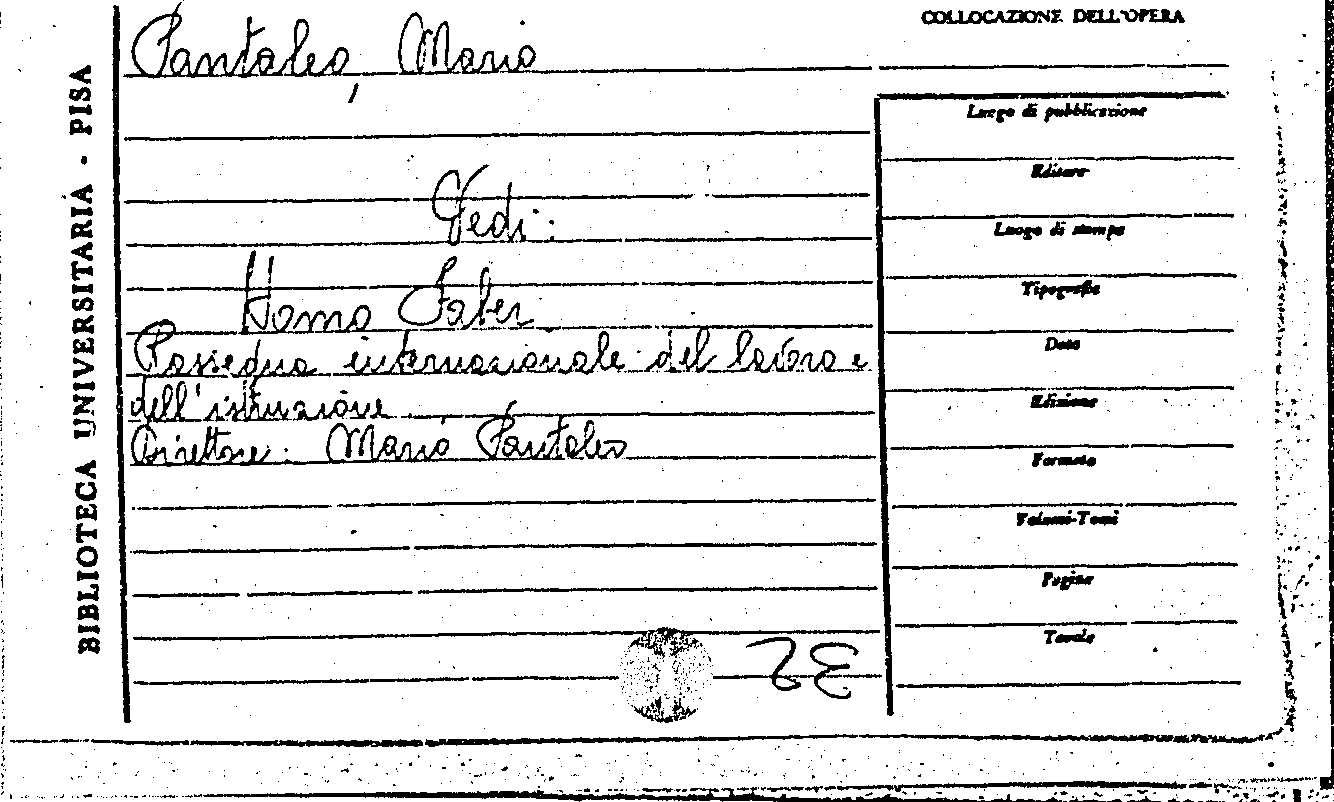 COLLOCAZIONE DELL'OPERA
Pantaleo, Mario
BIBLIOTECA UNIVERSITARIA - PISA
Vedi:
Homo Faber
Rassegna internazionale del lavoro e
dell'istruzione
Direttore: Mario Pantaleo
Luogo di pubblicazione
Editore
Luogo di stampa
Tipografia
Data
Edizione
Formato
Volumi-Tomi
Pagine
Tavole